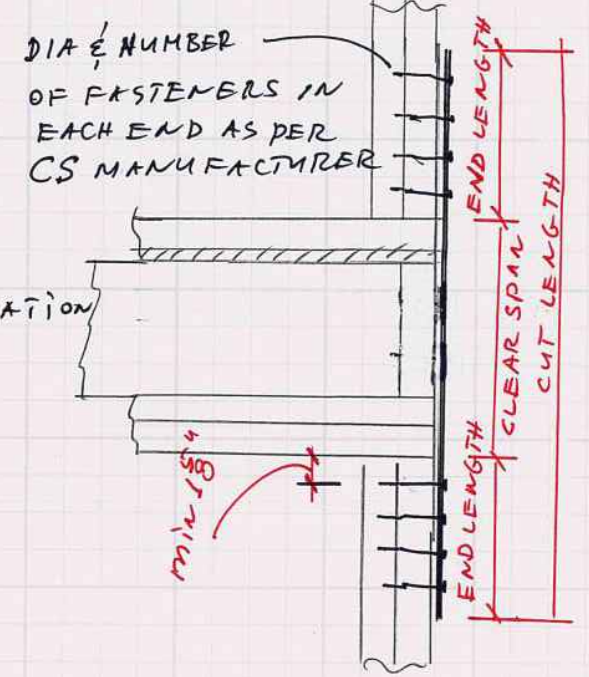 DIA & NUMBER
OF FASTENERS IN
EACH END AS PER
CS MANUFACTURER
ATION
END LENGTH
CLEAR SPAN
CUT LENGTH
END LENGTH
min 1 5/8"